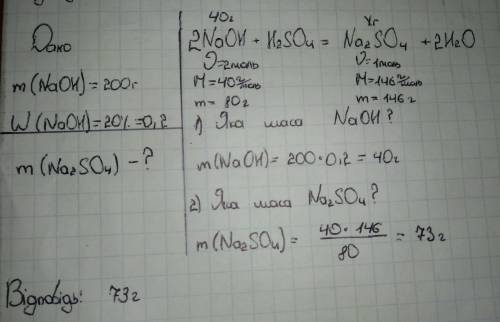 Дано
m(NaOH)=200г
W(NaOH)=20%=0,2
m(Na₂SO₄)-?
40г xг
2NaOH + H₂SO₄ = Na₂SO₄ + 2H₂O
ϑ=2моль ϑ=1моль
M=40г/моль M=146г/моль
m=80г m=146г
1) Яка маса NaOH?
m(NaOH)=200·0,2=40г
2) Яка маса Na₂SO₄?
m(Na₂SO₄)= 40·146/80 = 73г
Відповідь: 73г